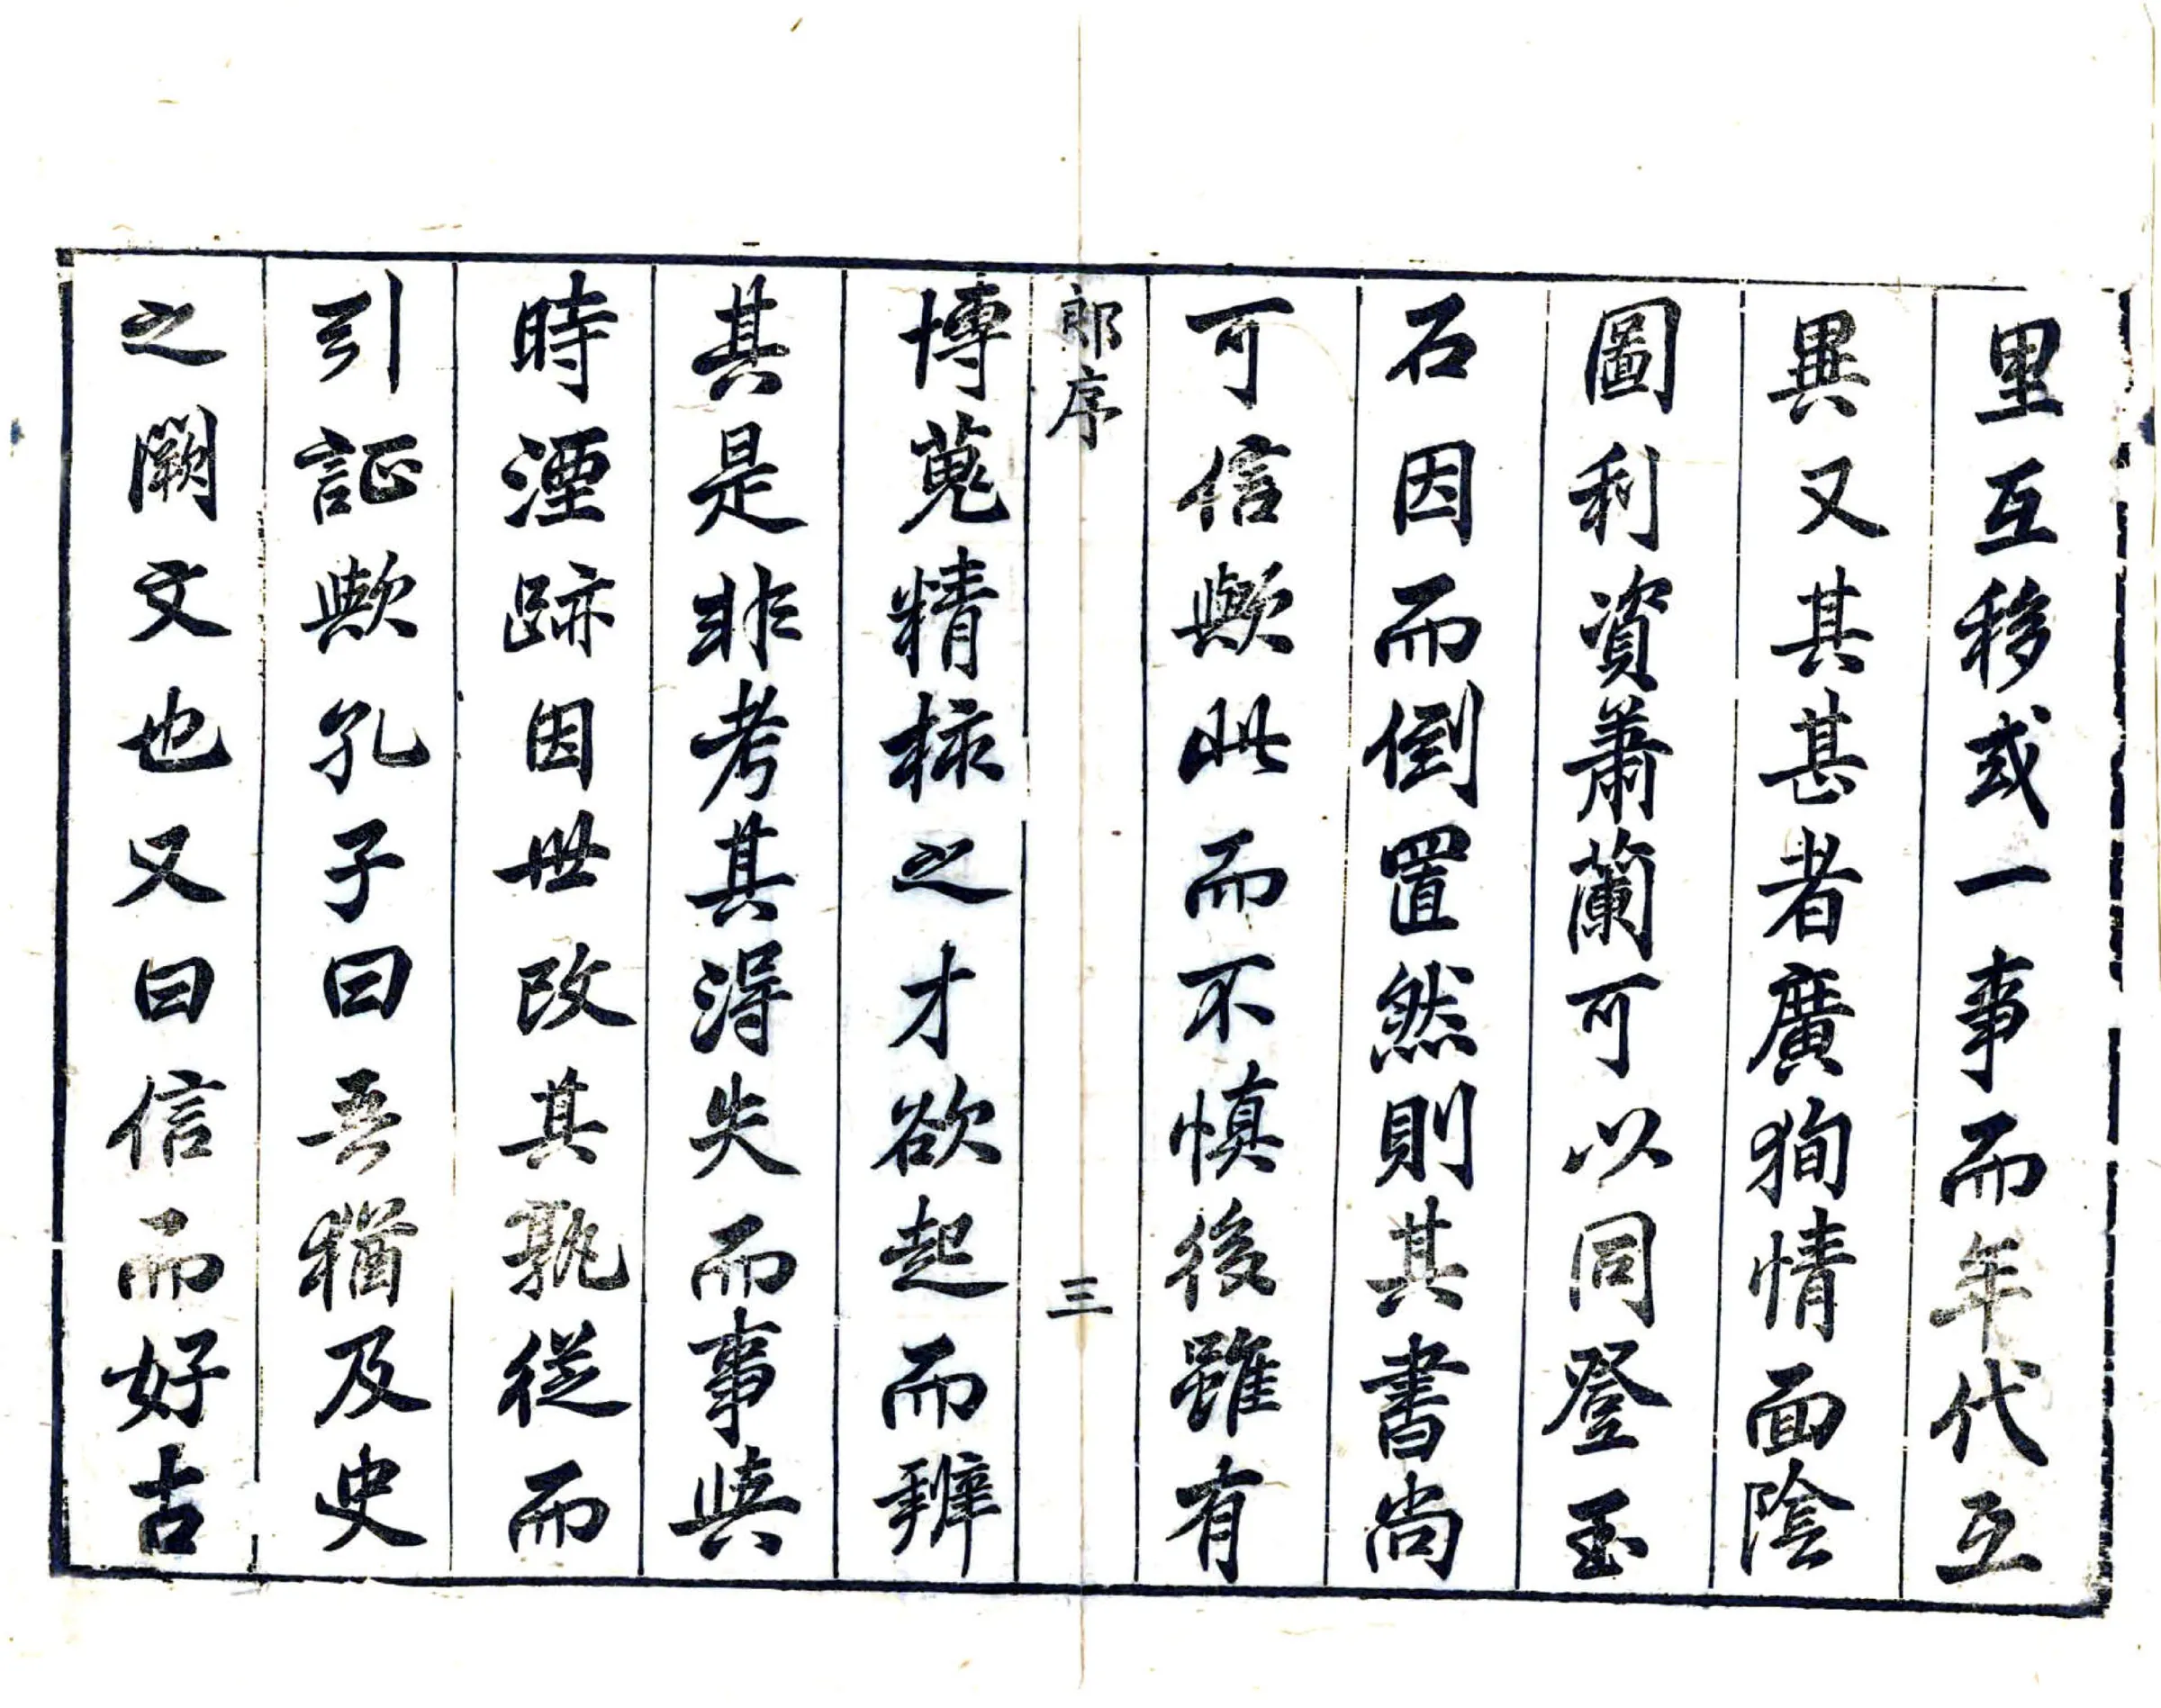 里互移或一事而年代互
異又其甚者廣狥情面陰
圖利資蕭蘭可以同登玉
石因而倒置然則其書尚
可信歟此而不慎後雖有
郎序
三
博蒐精核之才欲起而辨
其是非考其得失而事與
時湮跡因世改其孰從而
引証歟孔子曰吾猶及史
之闕文也又曰信而好古